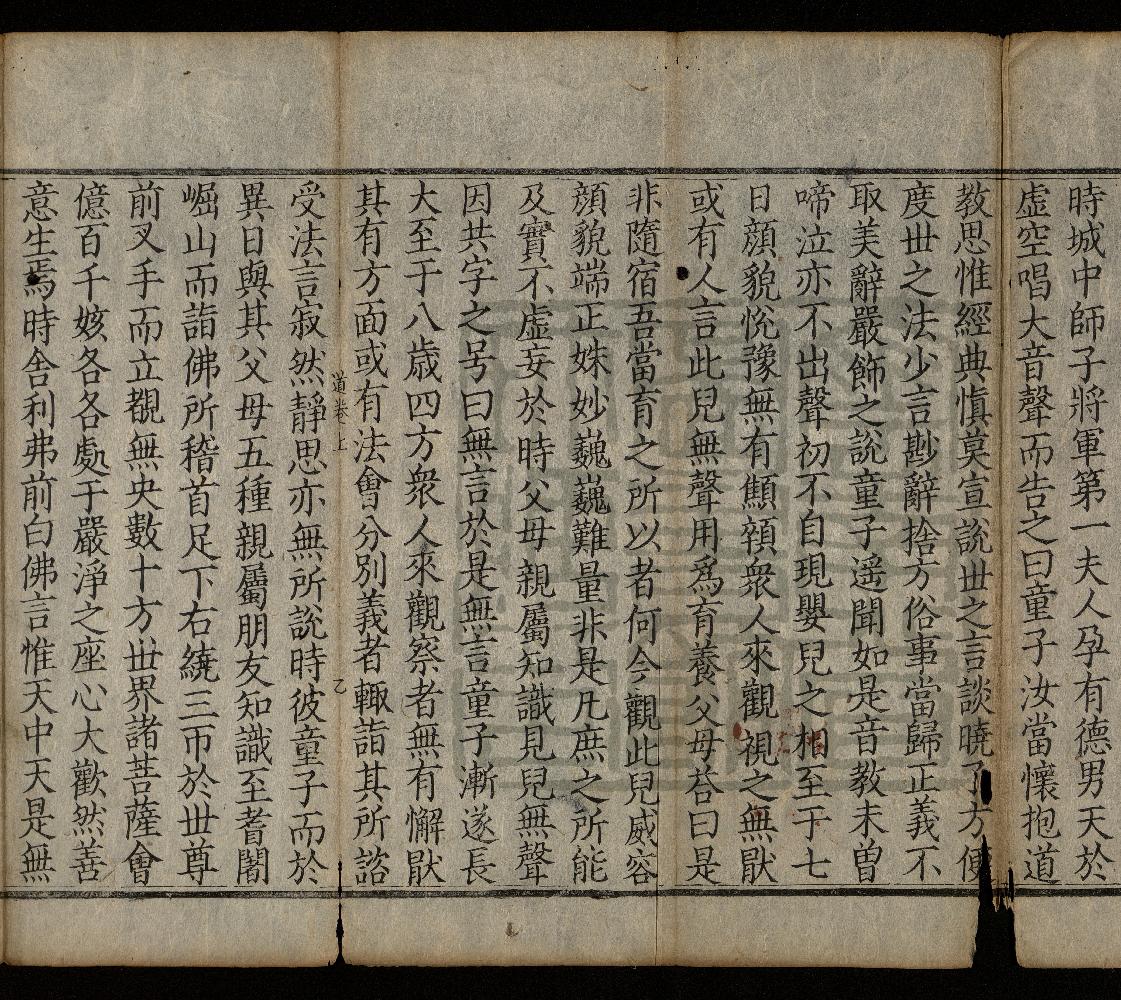 時城中師子將軍第一夫人孕有德男天於
虛空唱大音聲而告之曰童子汝當懷抱道
教思惟經典愼莫宣說世之言談曉了方便
度世之法少言尠辭捨方俗事當歸正義不
取美辭嚴飾之說童子遥聞如是音教未曾
啼泣亦不出聲初不自現嬰兒之相至于七
日顔貌恱豫無有顦顇衆人來觀視之無猒
或有人言此兒無聲用爲育養父母荅曰是
非隨宿吾當育之所以者何今觀此兒威容
顔貌端正姝妙巍巍難量非是凡庶之所能
及實不虛妄於時父母親屬知識見兒無聲
因共字之号曰無言於是無言童子漸遂長
大至于八歲四方衆人來觀察者無有懈猒
其有方面或有法會分別義者輙詣其所諮
道卷上 乙
受法言寂然靜思亦無所說時彼童子而於
異日與其父母五種親屬朋友知識至耆闍
崛山而詣佛所稽首足下右繞三帀於世尊
前叉手而立覩無央數十方世界諸菩薩會
億百千姟各各處于嚴淨之座心大歡然善
意生焉時舍利弗前白佛言惟天中天是無